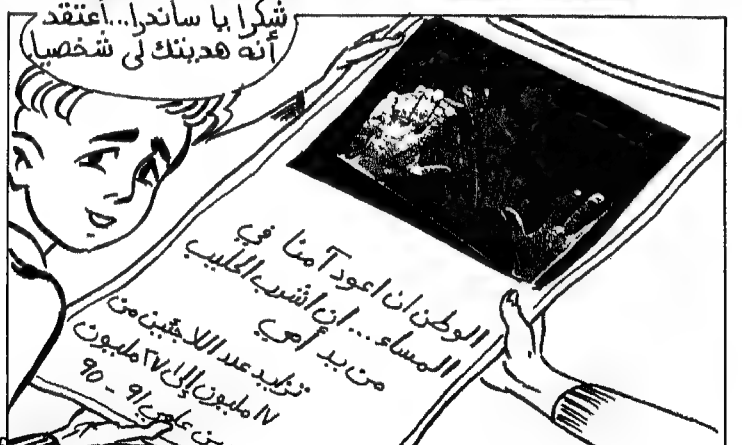 شكرا يا ساندرا...أعتقد
أنه هديتك لي شخصيا
الوطن ان اعود آمنا في
المساء... ان اشرب الحليب
من يد أمي
تزايد عدد اللاجئين من
١٧ مليون إلى ٢٧ مليون
بين عامي ٩١ - ٩٥